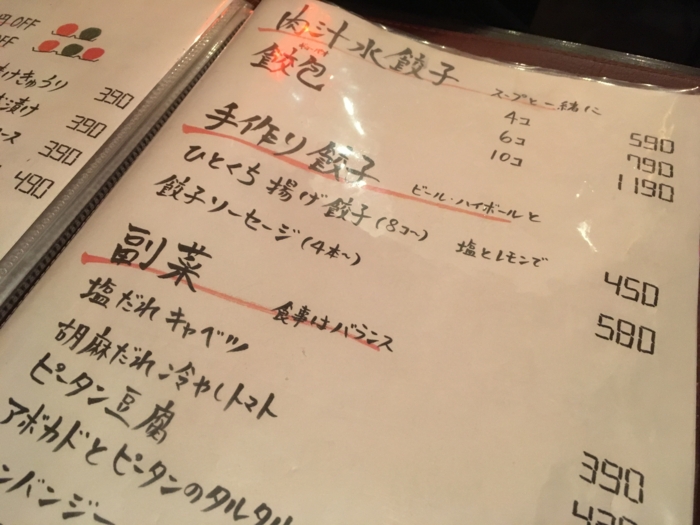 OFF
OFF
きゅうり 390
漬け 390
ース 390
490
肉汁水餃子 スープと一緒に
餃包 4コ 590
6コ 790
10コ 1190
手作り餃子 ビール・ハイボールと
ひとくち揚げ餃子(8コ〜) 塩とレモンで 450
餃子ソーセージ(4本〜) 580
副菜 食事はバランス
塩だれキャベツ 390
胡麻だれ冷やしトマト
ピータン豆腐
アボカドとピータンのタルタル
ンバンジー